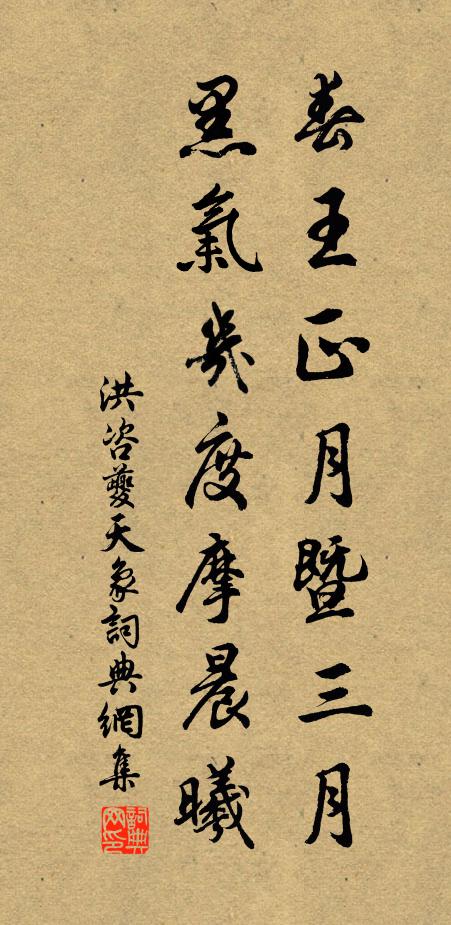 春王正月暨三月
黑氣幾度摩晨曦
洪咨夔天象詞典網集
詞典网印